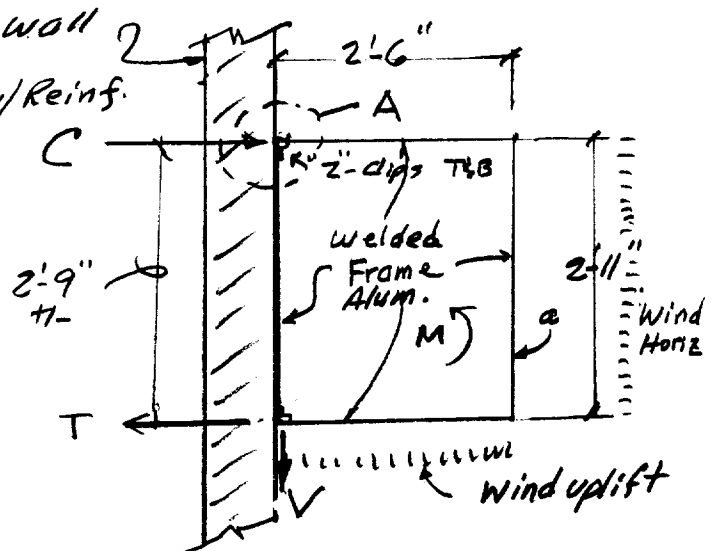 wall
/Reinf.
2'-6"
A
C
2"-clips T&B
welded
Frame
Alum.
2'-9"
+/-
2'-11"
M
a
Wind
Horiz
T
V
Wind uplift